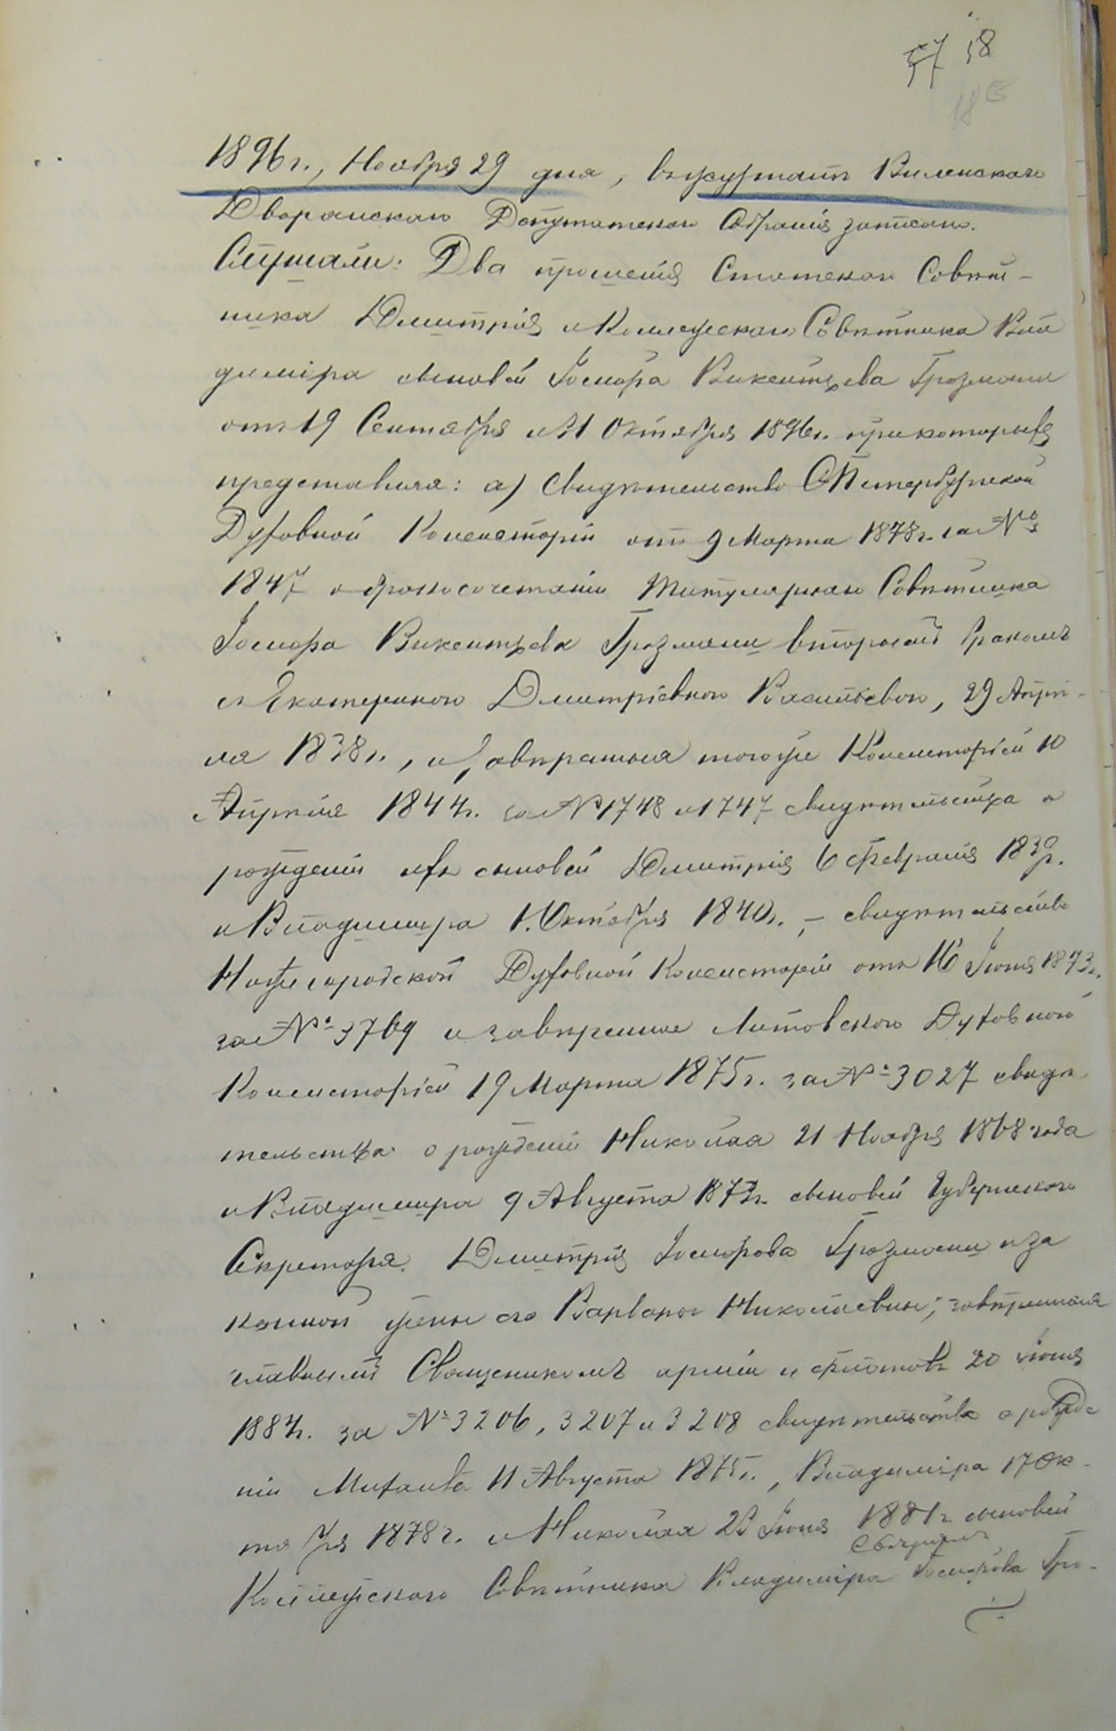 57 58
18
1896 г., Ноября 29 дня, въ журналѣ Виленскаго
Дворянскаго Депутатскаго Собранія записано.
Слушали: Два прошенія Статскаго Совѣт-
ника Дмитрія и Коллежскаго Совѣтника Вла
диміра сыновей Іосифа Викентьева Грозмани
отъ 19 Сентября и 31 Октября 1896 г. при которыхъ
представили: а) Свидѣтельство СПетербургской
Духовной Консисторіи отъ 9 Марта 1878 г. за №
1847 о бракосочетаніи Титулярнаго Совѣтника
Іосифа Викентьева Грозмани вторымъ бракомъ
съ Екатериною Дмитріевною Васильевою, 29 Апрѣ-
ля 1838 г., и завѣренныя тоюже Консисторіей 10
Апрѣля 1844 г. за № 1748 и 1747 свидѣтельства о
рожденіи ихъ сыновей Дмитрія 6 Февраля 1839 г.
и Владиміра 1 Октября 1840 г., – свидѣтельство
Нижегородской Духовной Консисторіи отъ 16 Іюня 1873 г.
за № 3769 и завѣренное Литовскою Духовною
Консисторіей 19 Марта 1875 г. за № 3027 свидѣ
тельства о рожденіи Николая 21 Ноября 1868 года
и Владиміра 9 Августа 1872 г. сыновей Губернскаго
Секретаря Дмитрія Іосифова Грозмани и за
конной жены его Варвары Николаевны; завѣренныя
главнымъ Священникомъ арміи и флотовъ 20 іюня
1884 г. за № 3206, 3207 и 3208 свидѣтельства о рожде
ніи Михаила 11 Августа 1875 г., Владиміра 17 Ок-
тября 1878 г. и Николая 25 Іюня 1881 г. сыновей
Коллежскаго Совѣтника Владиміра Іосифова Гро-